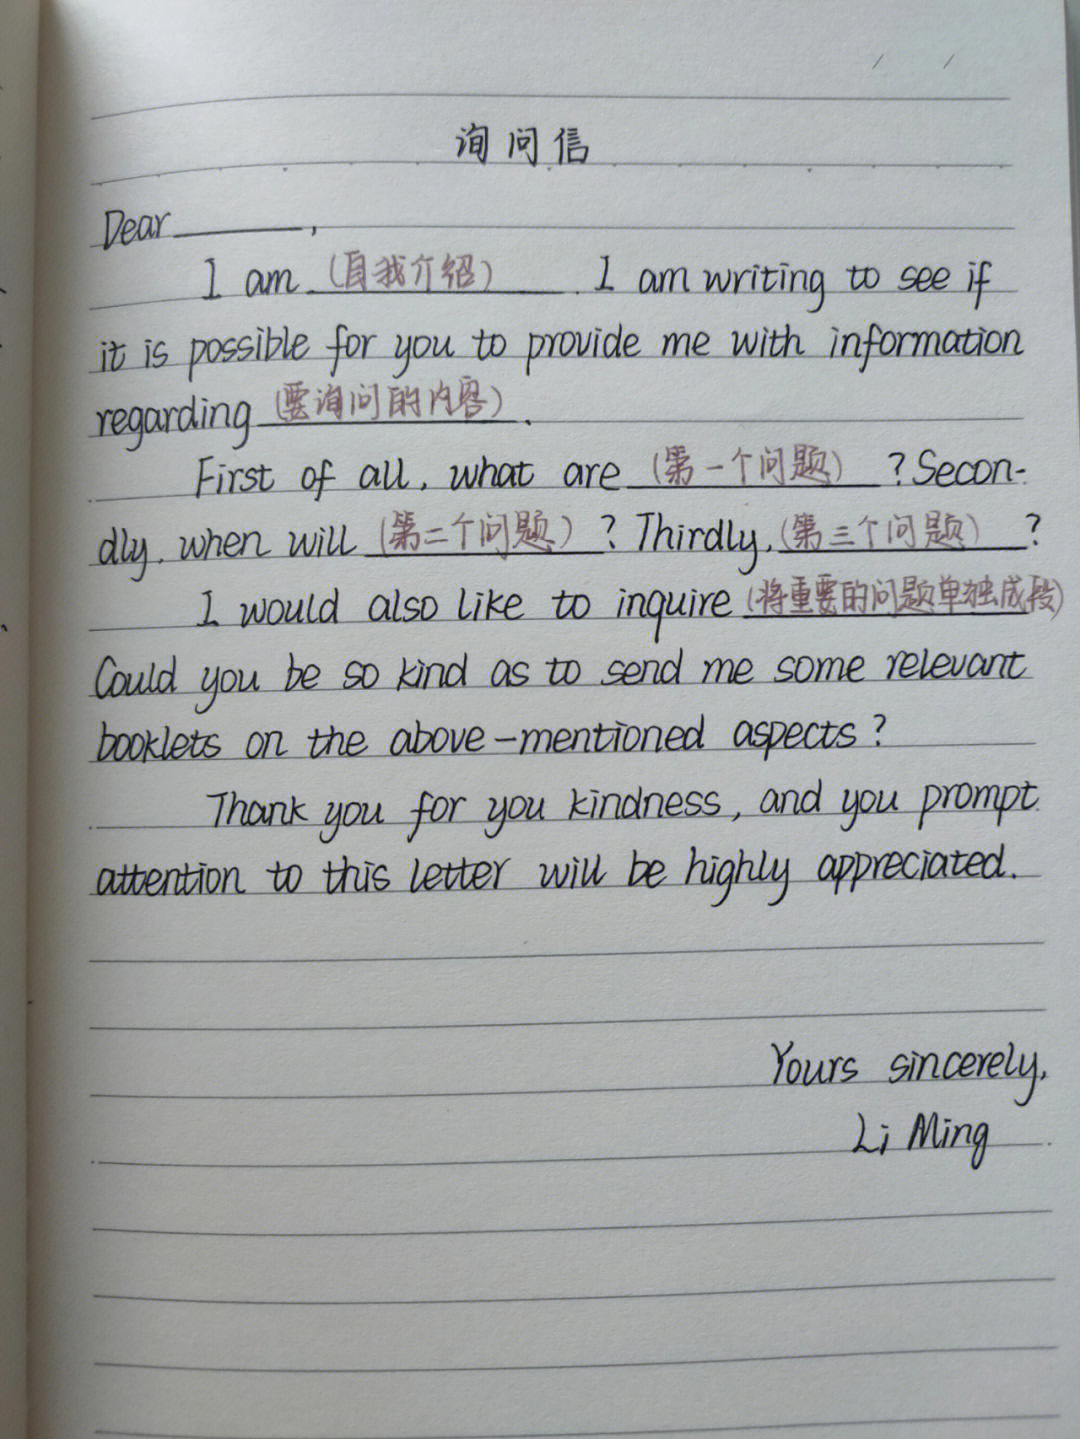 询问信
Dear ______,
I am (自我介绍). I am writing to see if
it is possible for you to provide me with information
regarding (要询问的内容).
First of all, what are (第一个问题) ? Secon-
dly, when will (第二个问题) ? Thirdly, (第三个问题) ?
I would also like to inquire (将重要的问题单独成段)
Could you be so kind as to send me some relevant
booklets on the above-mentioned aspects?
Thank you for you kindness, and you prompt
attention to this letter will be highly appreciated.
Yours sincerely,
Li Ming